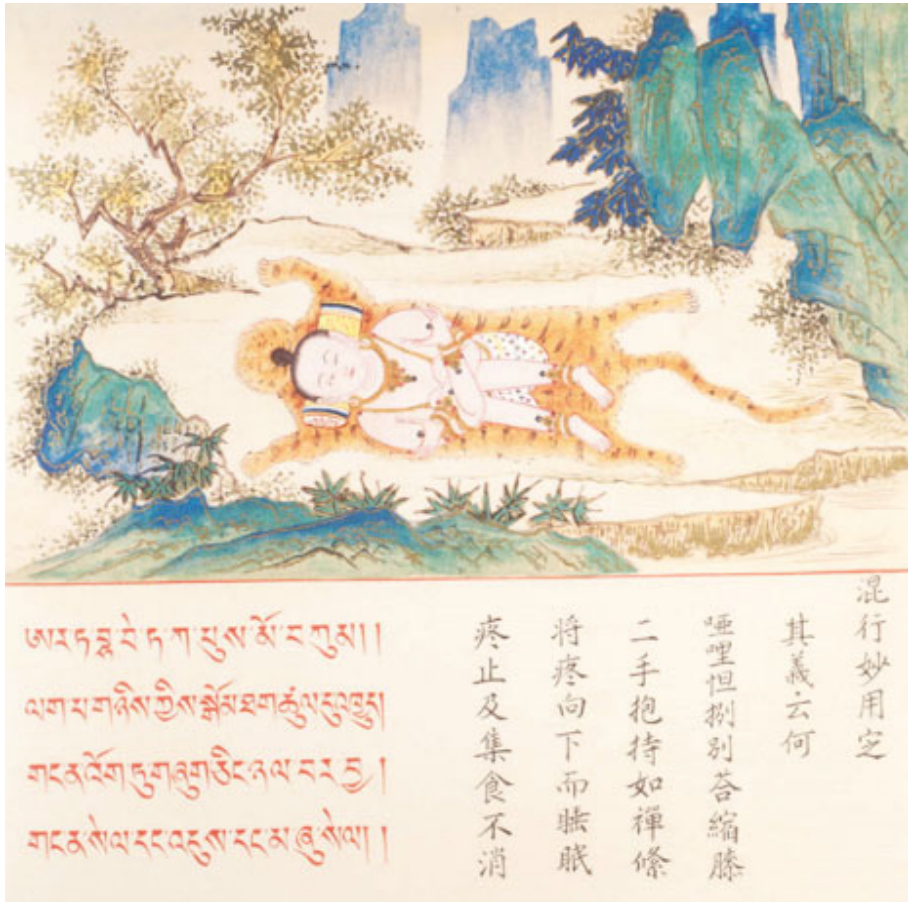 混行妙用定
其義云何
唖哩怛捌別荅縮膝
二手抱持如禪絛
将疼向下而睡眠
疼止及集食不消
ཨར་ཏ་བྷ་བེ་ཏ་ཀ་པུས་མོ་ང་ཀུམ། །
ལག་པ་གཉིས་ཀྱིས་སྒོམ་ཐག་ཚུལ་དུ་འཁྱུད།
གང་ན་འོག་ཏུ་གཞུག་ཅིང་ཉལ་བར་བྱ །
གང་ན་སེལ་དང་འདུས་དང་མ་ཞུ་སེལ། །